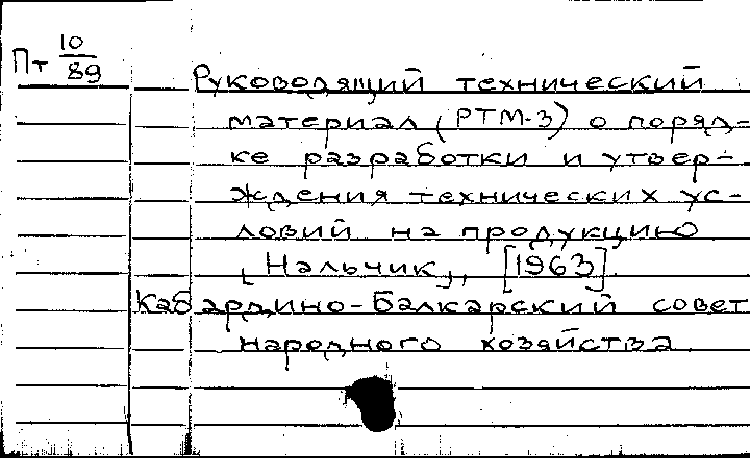 Пт 10/89
Руководящий технический
материал (РТМ-3) о поряд-
ке разработки и утвер-
ждения технических ус-
ловий на продукцию
[Нальчик], [1963].
Кабардино-Балкарский совет
народного хозяйства